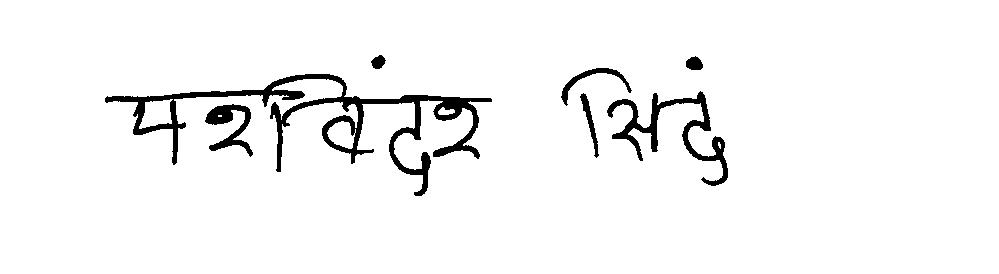 परविंदर सिंह